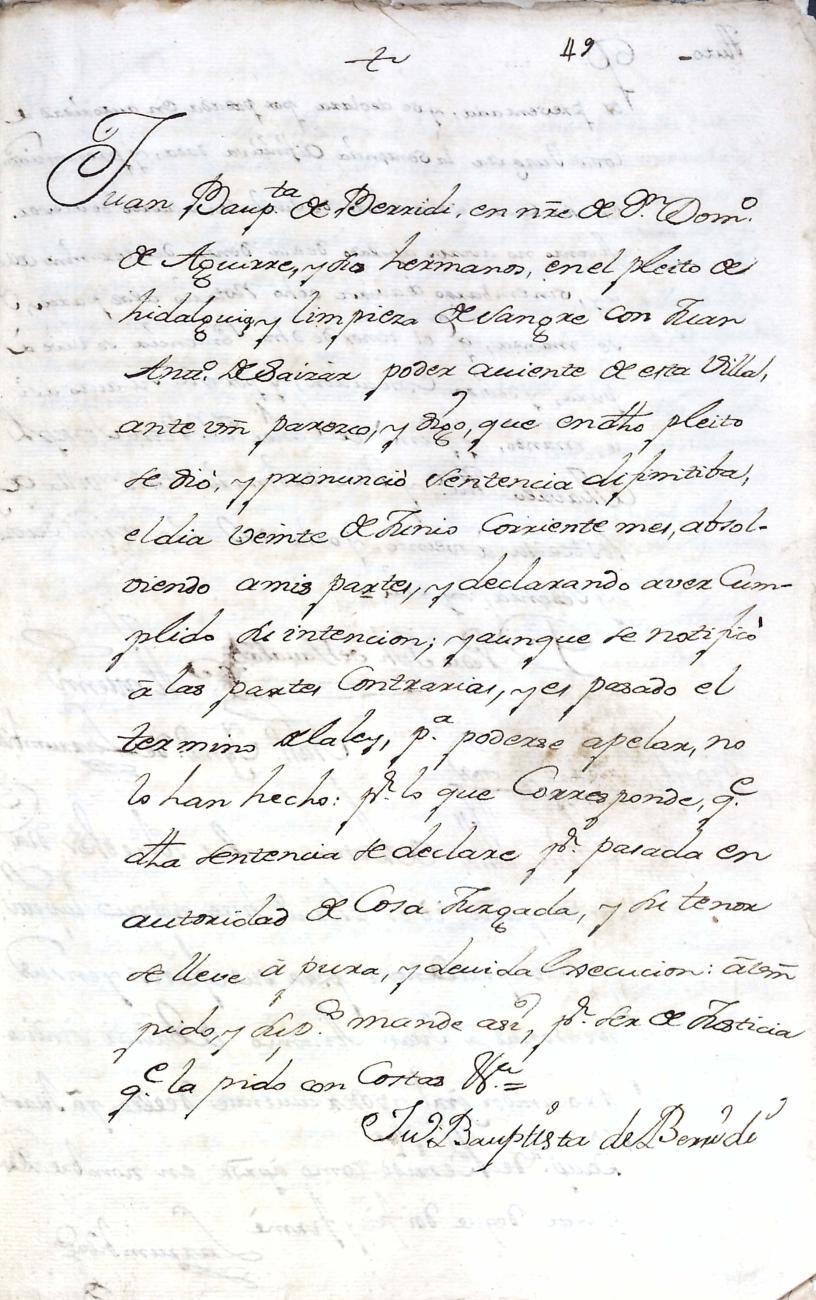 49
Juan Baup.ta de Berridi, en nr̃e de D.n Dom.o
de Aguirre, y sus hermanos, en el pleito de
hidalguia, y limpieza de sangre con Juan
Ant.o de Saizar poder aviente de esta Villa,
ante vm̃ parezco, y digo, que en dho pleito
se dió, y pronunció sentencia difinitiba,
el dia veinte de Junio corriente mes, absol-
viendo a mis partes, y declarando aver Cum-
plido su intencion; y aunque se notificó
à las partes Contrarias, y es pasado el
termino de la ley, p.a poderse apelar, no
lo han hecho: p.r lo que Corresponde, q.e
dha sentencia se declare p.r pasada en
autoridad de Cosa Juzgada, y su tenor
se lleve à pura, y devida execucion: à vm̃
pido, y sup.co mande asi, p.r ser de Justicia
q.e la pido con Costas &.a =
Ju.o Bauptista de Berridi